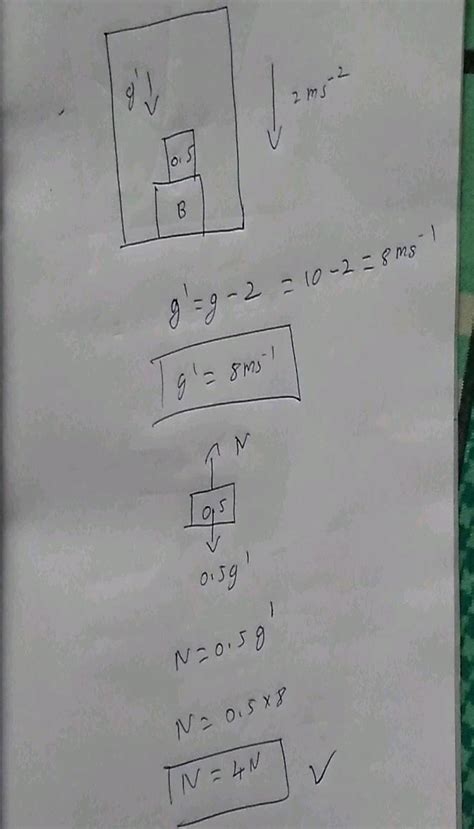 g'
2 ms⁻²
0.5
B
g' = g - 2 = 10 - 2 = 8 ms⁻¹
g' = 8ms⁻¹
N
0.5
0.5g'
N = 0.5g'
N = 0.5 × 8
N = 4N ✓